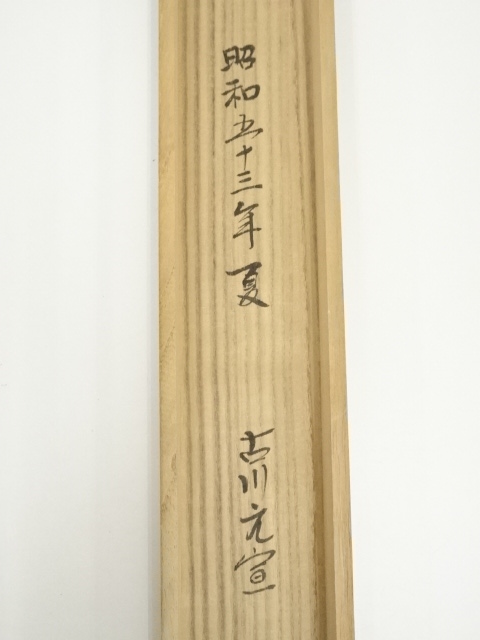 昭和五十三年夏
古川元宣